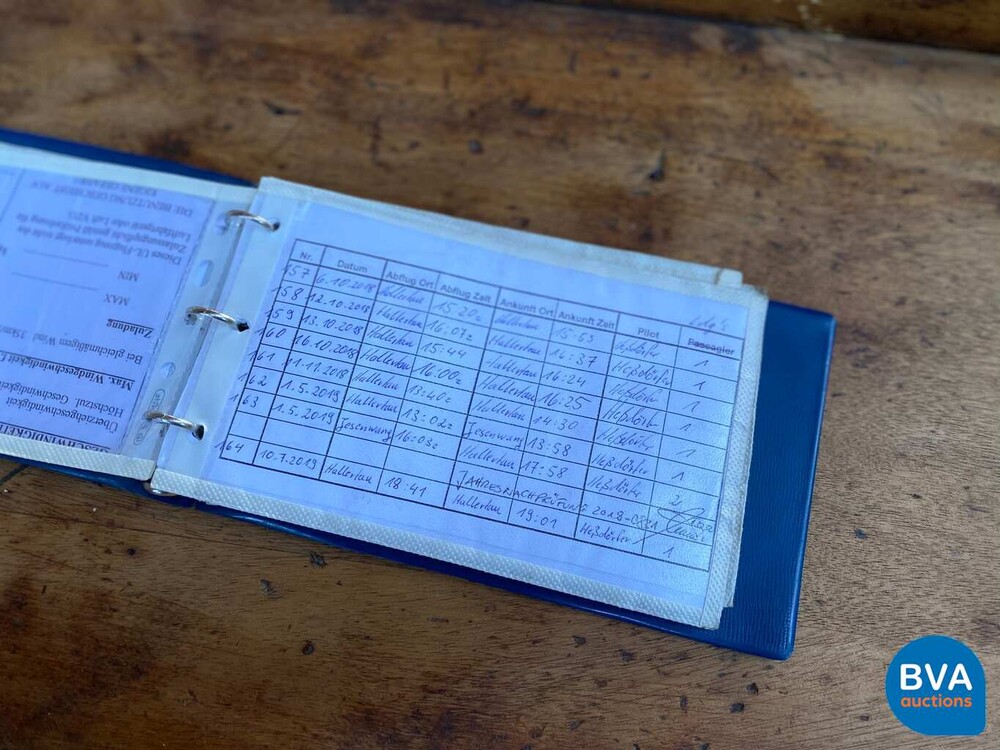 Nr. Datum Abflug Ort Abflug Zeit Ankunft Ort Ankunft Zeit Pilot Passagier
157 6.10.2018 Hallertau 15:20z Hallertau 15:53 Heßdörfer 1
158 12.10.2018 Hallertau 16:07z Hallertau 16:37 Heßdörfer 1
159 13.10.2018 Hallertau 15:44 Hallertau 16:24 Heßdörfer 1
160 16.10.2018 Hallertau 16:00z Hallertau 16:25 Heßdörfer 1
161 11.11.2018 Hallertau 13:40z Hallertau 14:30 Heßdörfer 1
162 1.5.2019 Hallertau 13:02z Jesenwang 13:58 Heßdörfer 2
163 1.5.2019 Jesenwang 16:03z Hallertau 17:58
JAHRESNACHPRÜFUNG 2018-
164 10.7.2019 Hallertau 18:41 Hallertau 19:01 Heßdörfer 1
GESCHWINDIGKEIT
Überziehgeschwindigkeit
Höchstzul. Geschwindigkeit
Max. Windgeschwindigkeit
Bei gleichmäßigem Wind
Zuladung
MAX
MIN
Dieses UL-Flugzeug unterliegt nicht der
Zulassungspflicht gemäß Prüfordnung für
Luftfahrtgerät oder Luft VZO.
DIE BENUTZUNG GESCHIEHT AUF
EIGENE GEFAHR!
BVA
auctions